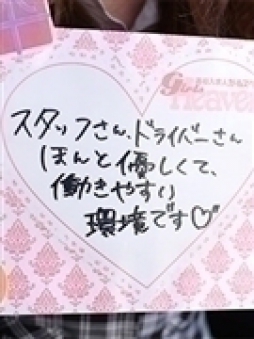 Girls
Heaven
スタッフさん、ドライバーさん
ほんと優しくて、
働きやすい
環境です♡